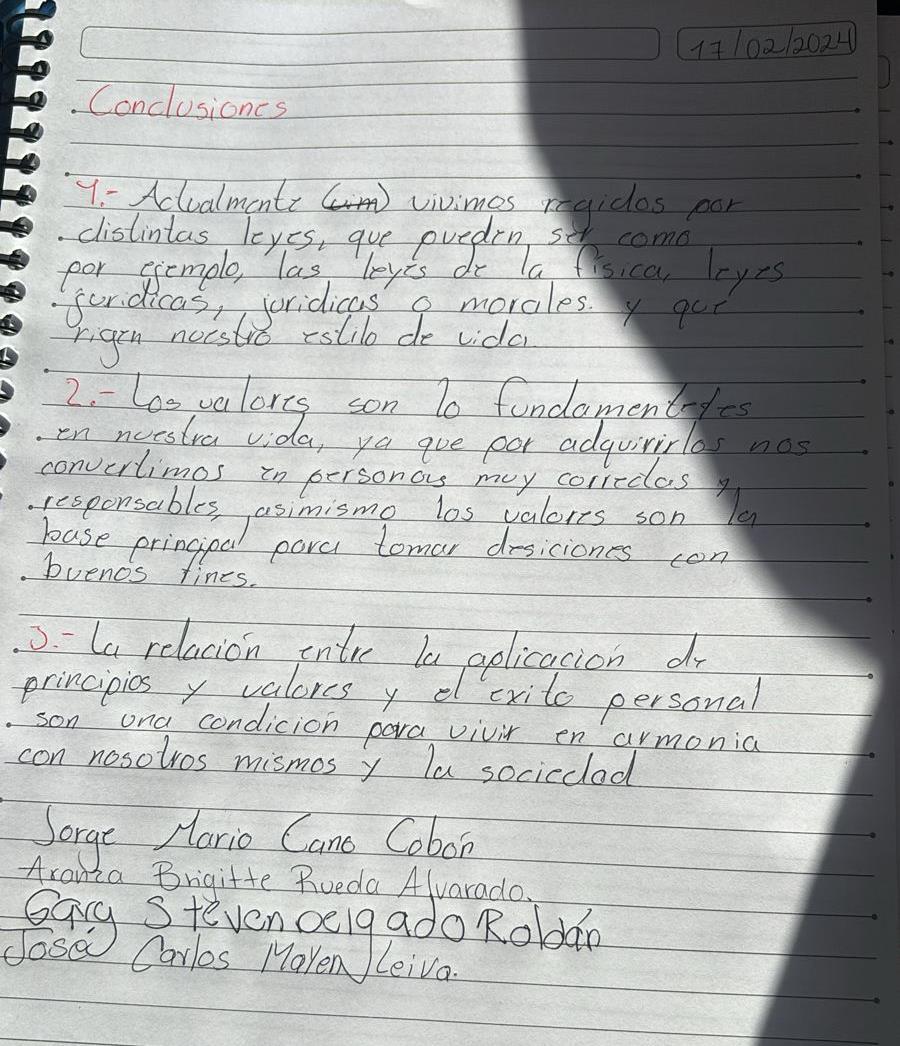 17/02/2024
Conclusiones
1.- Actualmente vivimos regidos por
distintas leyes, que pueden ser como
por ejemplo, las leyes de la física, leyes
juridicas, juridicas o morales. y que
rigen nuestro estilo de vida
2.- Los valores son lo fundamentales
en nuestra vida, ya que por adquirirlos nos
convertimos en personas muy correctas y
responsables, asimismo los valores son la
base principal para tomar desiciones con
buenos fines.
3.- La relación entre la aplicación de
principios y valores y el exito personal
son una condición para vivir en armonia
con nosotros mismos y la sociedad
Jorge Mario Cano Cobón
Aranza Brigitte Rueda Alvarado.
Gary Steven Delgado Roldán
José Carlos Mayen Leiva.